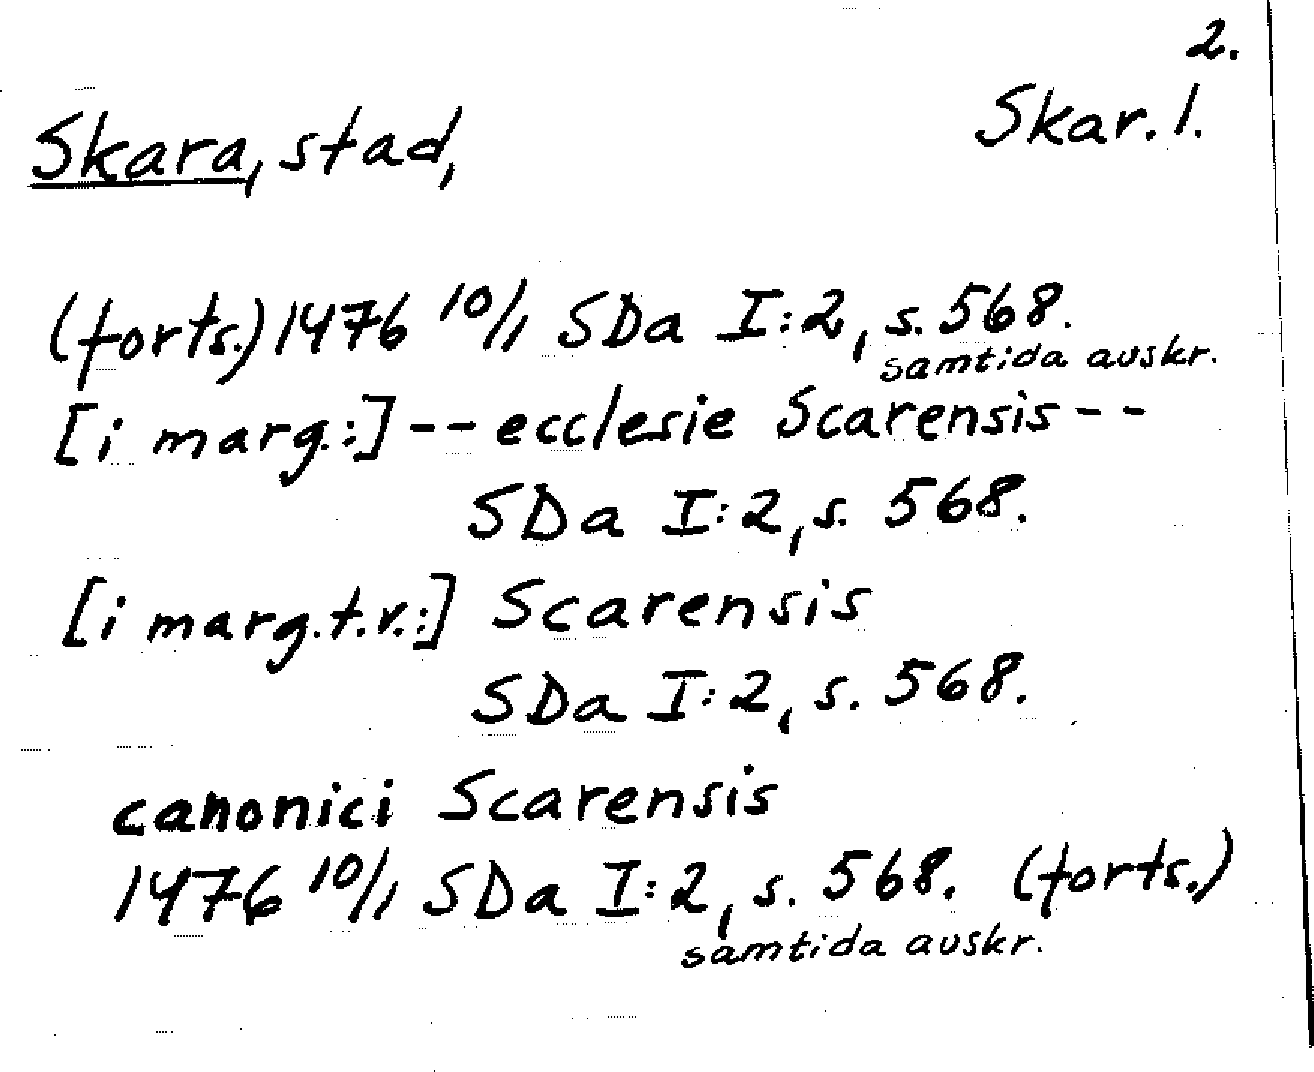 2.
Skara, stad,
Skar. l.
(forts.) 1476 10/1 SDa I:2, s. 568.
samtida avskr.
[i marg.:] -- ecclesie Scarensis --
SDa I:2, s. 568.
[i marg.t.v.:] Scarensis
SDa I:2, s. 568.
canonici Scarensis
1476 10/1 SDa I:2, s. 568. (forts.)
samtida avskr.